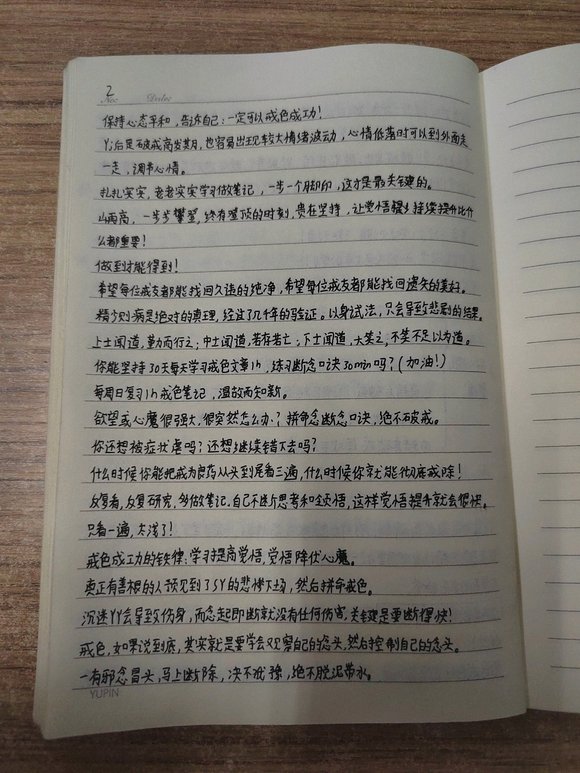 2
No:
Date:
保持心态平和，告诉自己：一定可以戒色成功！
YJ后是破戒高发期，也容易出现较大情绪波动，心情低落时可以到外面走
一走，调节心情。
扎扎实实，老老实实学习做笔记，一步一个脚印，这才是最关键的。
山再高，一步步攀登，终有登顶的时刻，贵在坚持，让觉悟稳步持续提升比什
么都重要！
做到才能得到！
希望每位戒友都能找回久违的纯净，希望每位戒友都能找回遗失的美好。
精少则病是绝对的真理，经过了几千年的验证。以身试法，只会导致悲剧的结果。
上士闻道，勤而行之；中士闻道，若存若亡；下士闻道，大笑之，不笑不足以为道。
你能坚持30天每天学习戒色文章1h，练习断念口诀30min吗？（加油！）
每周日复习1h戒色笔记，温故而知新。
欲望或心魔很强大，很突然怎么办？拼命念断念口诀，绝不破戒。
你还想被症状虐吗？还想继续错下去吗？
什么时候你能把戒为良药从头到尾看三遍，什么时候你就能彻底戒除！
反复看，反复研究，多做笔记，自己不断思考和领悟，这样觉悟提升就会很快。
只看一遍，太浅了！
戒色成功的铁律：学习提高觉悟，觉悟降伏心魔。
真正有善根的人预见到了SY的悲惨下场，然后拼命戒色。
沉迷YY会导致伤身，而念起即断就没有任何伤害，关键是要断得快！
戒色，如果说到底，其实就是要学会观察自己的念头，然后控制自己的念头。
一有邪念冒头，马上断除，决不犹豫，绝不脱泥带水。
YUPIN